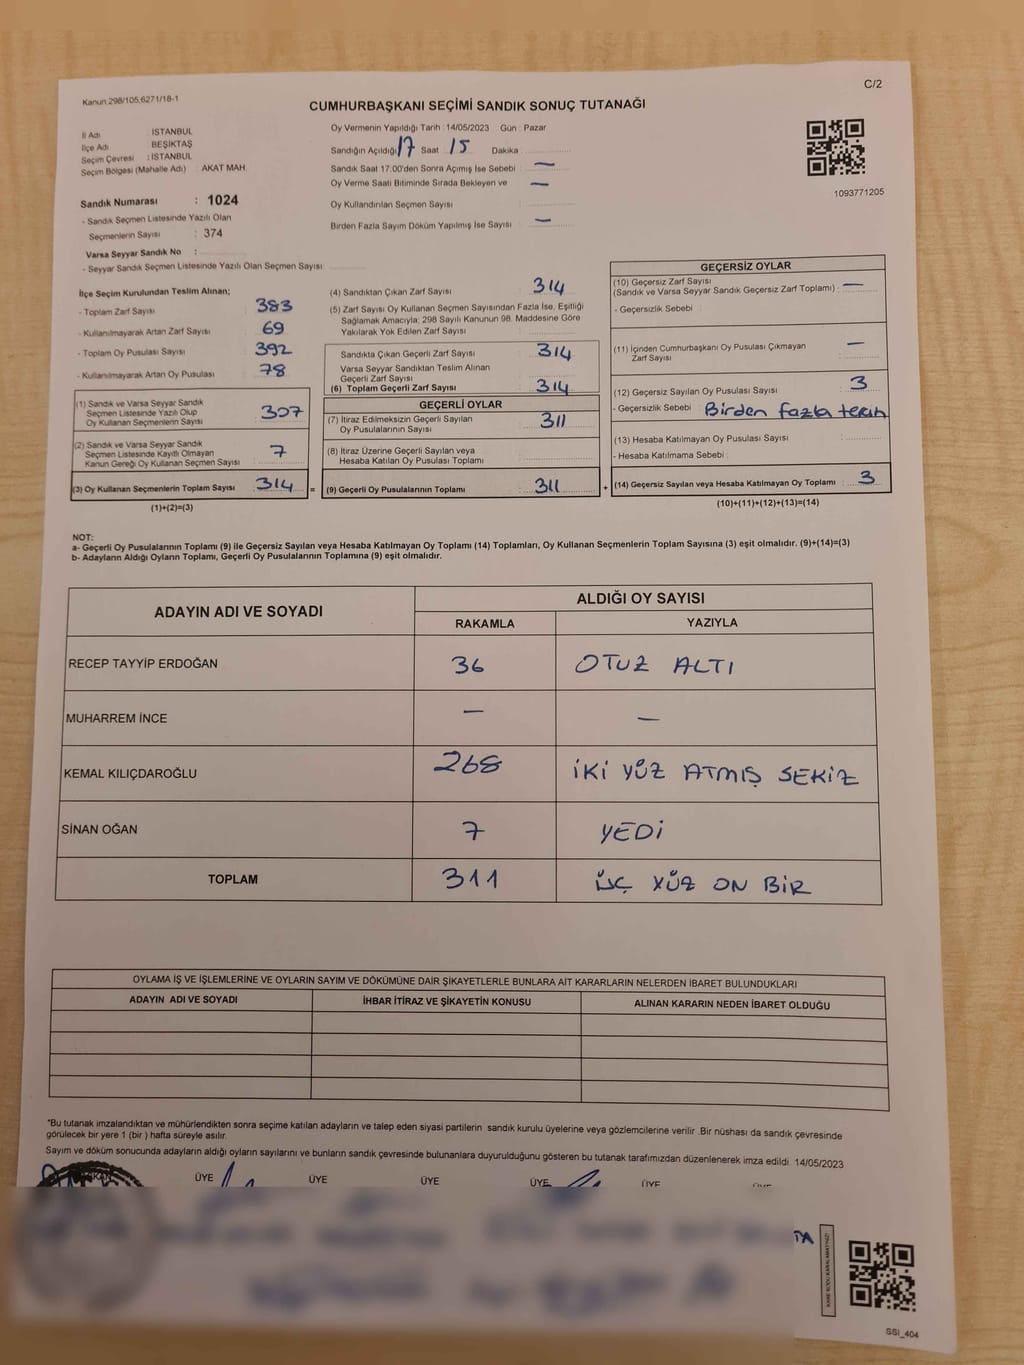 Kanun.298/105,6271/18-1
C/2
CUMHURBAŞKANI SEÇİMİ SANDIK SONUÇ TUTANAĞI
İl Adı : İSTANBUL
İlçe Adı BEŞİKTAŞ
Seçim Çevresi : İSTANBUL
Seçim Bölgesi (Mahalle Adı) : AKAT MAH.
Sandık Numarası : 1024
- Sandık Seçmen Listesinde Yazılı Olan
Seçmenlerin Sayısı : 374
Varsa Seyyar Sandık No :
- Seyyar Sandık Seçmen Listesinde Yazılı Olan Seçmen Sayısı:
Oy Vermenin Yapıldığı Tarih : 14/05/2023 Gün : Pazar
Sandığın Açıldığı 17 Saat 15 Dakika
Sandık Saat 17:00'den Sonra Açımış İse Sebebi : —
Oy Verme Saati Bitiminde Sırada Bekleyen ve —
Oy Kullandırılan Seçmen Sayısı
Birden Fazla Sayım Döküm Yapılmış İse Sayısı : —
1093771205
İlçe Seçim Kurulundan Teslim Alınan;
- Toplam Zarf Sayısı : 383
- Kullanılmayarak Artan Zarf Sayısı : 69
- Toplam Oy Pusulası Sayısı : 392
- Kullanılmayarak Artan Oy Pusulası : 78
(1) Sandık ve Varsa Seyyar Sandık
Seçmen Listesinde Yazılı Olup
Oy Kullanan Seçmenlerin Sayısı : 307
(2) Sandık ve Varsa Seyyar Sandık
Seçmen Listesinde Kayıtlı Olmayan
Kanun Gereği Oy Kullanan Seçmen Sayısı : 7
(3) Oy Kullanan Seçmenlerin Toplam Sayısı : 314 =
(1)+(2)=(3)
(4) Sandıktan Çıkan Zarf Sayısı : 314
(5) Zarf Sayısı Oy Kullanan Seçmen Sayısından Fazla İse, Eşitliği
Sağlamak Amacıyla; 298 Sayılı Kanunun 98. Maddesine Göre
Yakılarak Yok Edilen Zarf Sayısı
Sandıkta Çıkan Geçerli Zarf Sayısı : 314
Varsa Seyyar Sandıktan Teslim Alınan
Geçerli Zarf Sayısı
(6) Toplam Geçerli Zarf Sayısı : 314
GEÇERLİ OYLAR
(7) İtiraz Edilmeksizin Geçerli Sayılan
Oy Pusulalarının Sayısı : 311
(8) İtiraz Üzerine Geçerli Sayılan veya
Hesaba Katılan Oy Pusulası Toplamı
(9) Geçerli Oy Pusulalarının Toplamı : 311 +
GEÇERSİZ OYLAR
(10) Geçersiz Zarf Sayısı
(Sandık ve Varsa Seyyar Sandık Geçersiz Zarf Toplamı) : —
- Geçersizlik Sebebi :
(11) İçinden Cumhurbaşkanı Oy Pusulası Çıkmayan
Zarf Sayısı —
(12) Geçersiz Sayılan Oy Pusulası Sayısı : 3
- Geçersizlik Sebebi : Birden fazla tercih
(13) Hesaba Katılmayan Oy Pusulası Sayısı
- Hesaba Katılmama Sebebi :
(14) Geçersiz Sayılan veya Hesaba Katılmayan Oy Toplamı : 3
(10)+(11)+(12)+(13)=(14)
NOT:
a- Geçerli Oy Pusulalarının Toplamı (9) ile Geçersiz Sayılan veya Hesaba Katılmayan Oy Toplamı (14) Toplamları, Oy Kullanan Seçmenlerin Toplam Sayısına (3) eşit olmalıdır. (9)+(14)=(3)
b- Adayların Aldığı Oyların Toplamı, Geçerli Oy Pusulalarının Toplamına (9) eşit olmalıdır.
ADAYIN ADI VE SOYADI ALDIĞI OY SAYISI
RAKAMLA YAZIYLA
RECEP TAYYİP ERDOĞAN 36 OTUZ ALTI
MUHARREM İNCE — —
KEMAL KILIÇDAROĞLU 268 İKİ YÜZ ATMIŞ SEKİZ
SİNAN OĞAN 7 YEDİ
TOPLAM 311 ÜÇ YÜZ ON BİR
OYLAMA İŞ VE İŞLEMLERİNE VE OYLARIN SAYIM VE DÖKÜMÜNE DAİR ŞİKAYETLERLE BUNLARA AİT KARARLARIN NELERDEN İBARET BULUNDUKLARI
ADAYIN ADI VE SOYADI İHBAR İTİRAZ VE ŞİKAYETİN KONUSU ALINAN KARARIN NEDEN İBARET OLDUĞU
"Bu tutanak imzalandıktan ve mühürlendikten sonra seçime katılan adayların ve talep eden siyasi partilerin sandık kurulu üyelerine veya gözlemcilerine verilir .Bir nüshası da sandık çevresinde
görülecek bir yere 1 (bir ) hafta süreyle asılır.
Sayım ve döküm sonucunda adayların aldığı oyların sayılarını ve bunların sandık çevresinde bulunanlara duyurulduğunu gösteren bu tutanak tarafımızdan düzenlenerek imza edildi. 14/05/2023
ÜYE ÜYE ÜYE ÜYE ÜYE
SSI_404